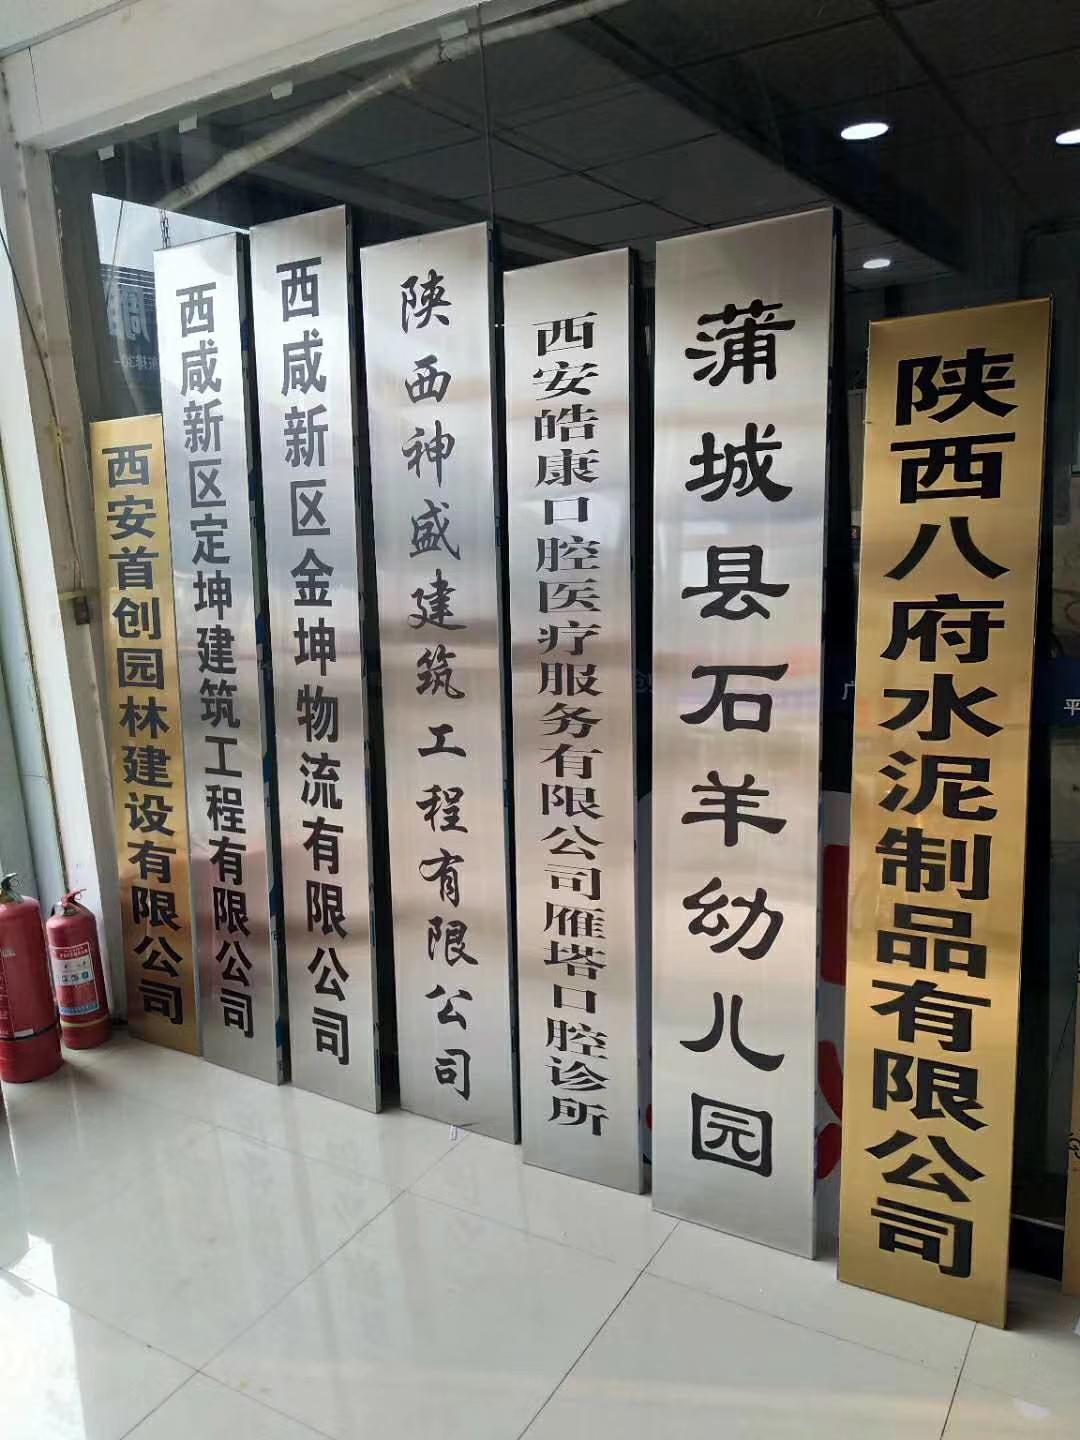 西安首创园林建设有限公司
西咸新区定坤建筑工程有限公司
西咸新区金坤物流有限公司
陕西神盛建筑工程有限公司
西安皓康口腔医疗服务有限公司雁塔口腔诊所
蒲城县石羊幼儿园
陕西八府水泥制品有限公司
广
平